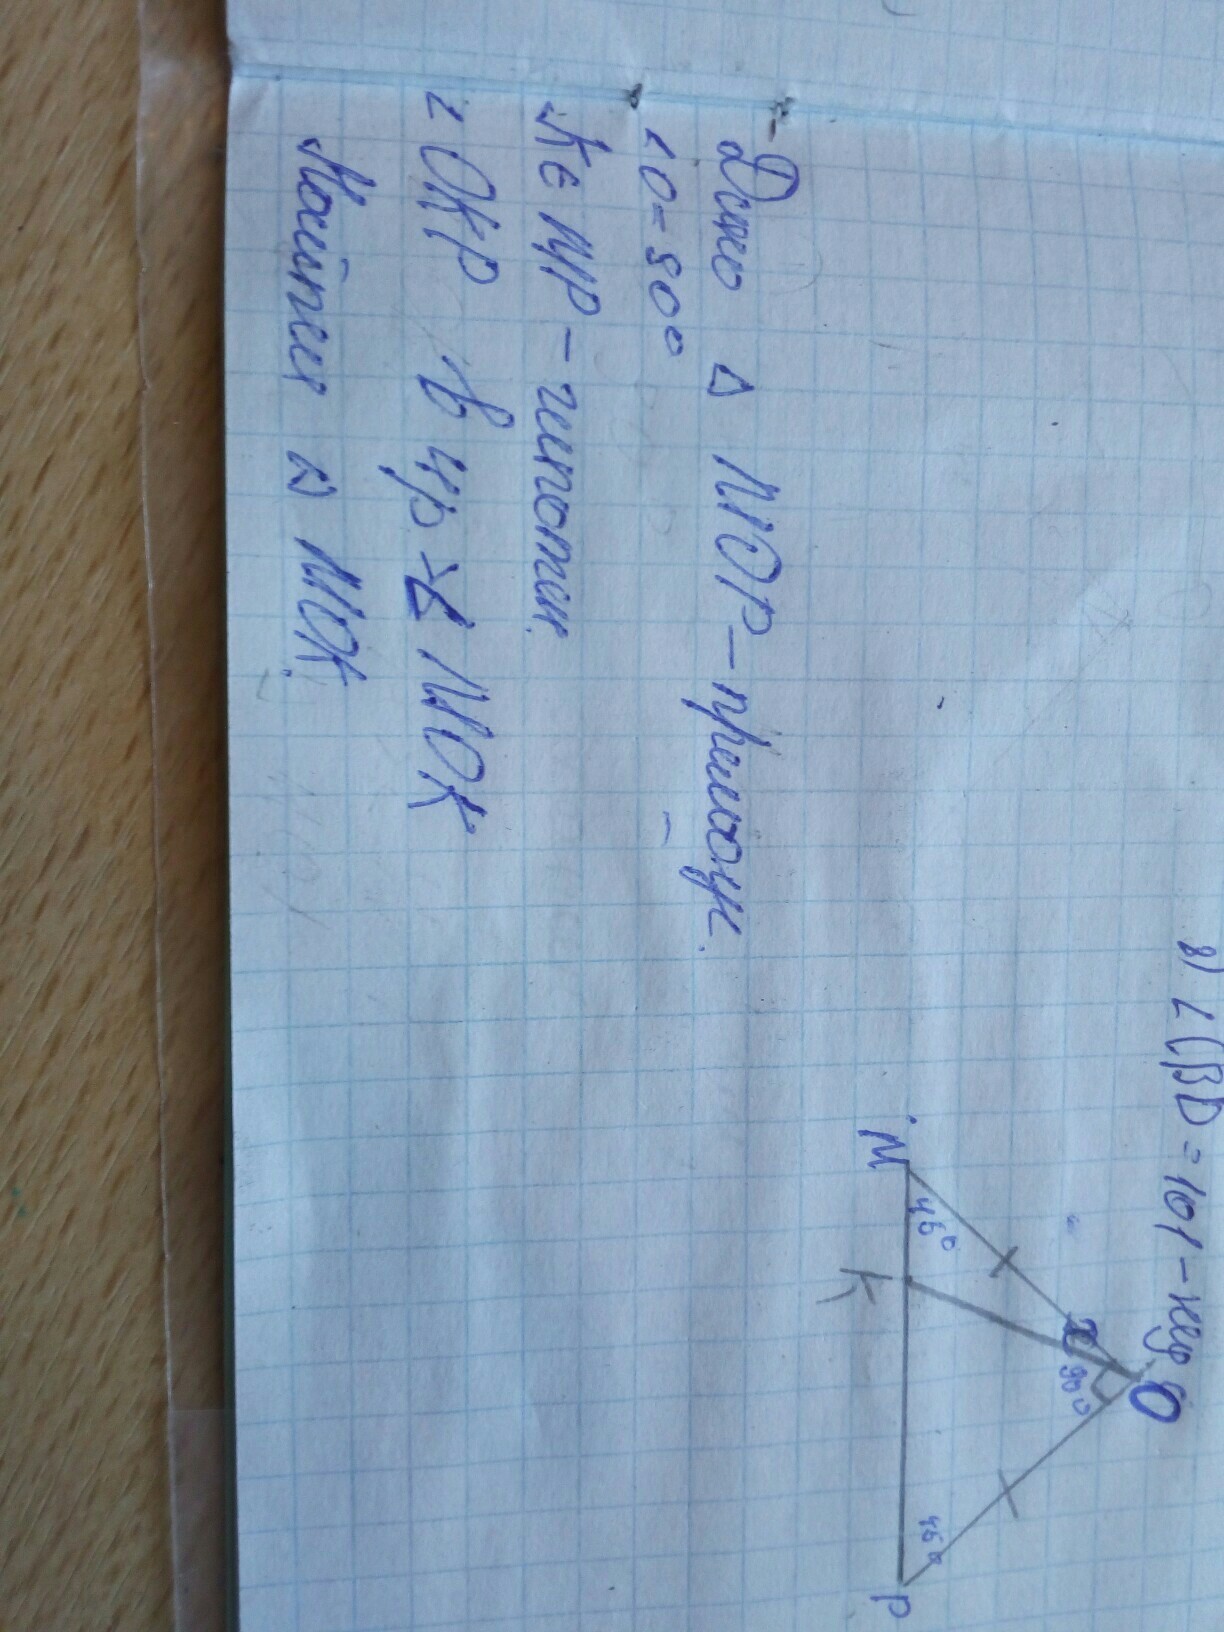 8) ∠CBD = 101 - кут
O
90°
M
45°
45°
K
P
Дано △ MOP - прямоуг.
∠O = 90°
K ∈ MP - гипотен.
∠OKP в 4р > ∠ MOK
Найти △ MOK